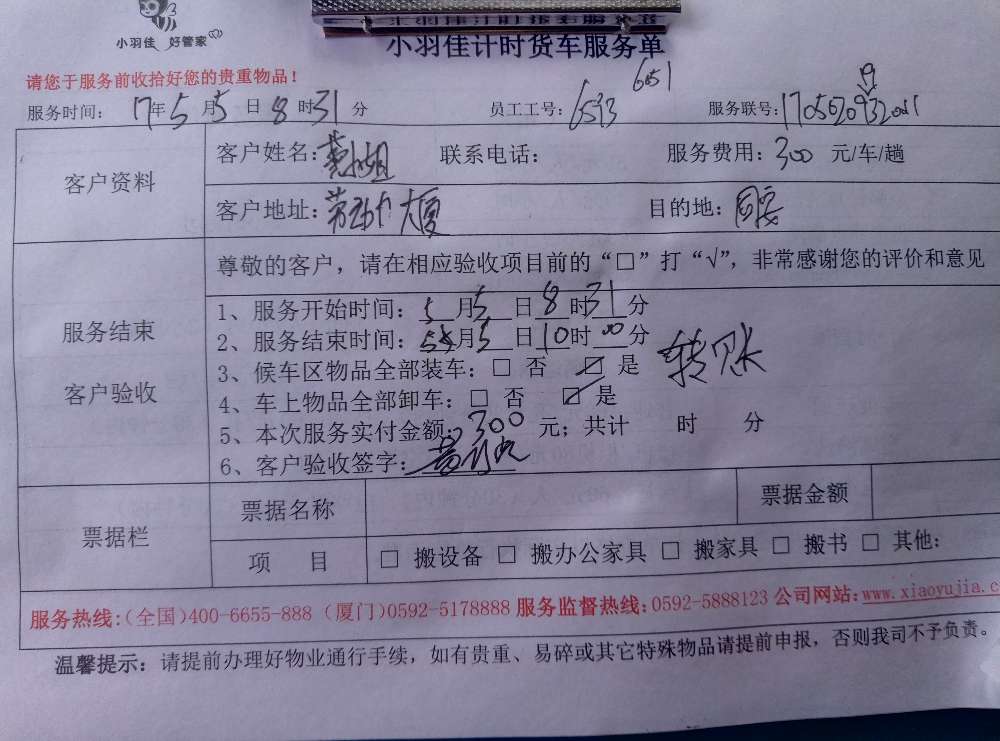 小羽佳 好管家
小羽佳计时货车服务单
请您于服务前收拾好您的贵重物品！
6051
服务时间： 17年5月5日8时31分 员工工号：6593 服务联号：
客户资料
客户姓名：黄小姐 联系电话： 服务费用：300 元/车/趟
客户地址：劳动力大厦 目的地：同安
服务结束
客户验收
尊敬的客户，请在相应验收项目前的“□”打“√”，非常感谢您的评价和意见
1、服务开始时间：5月5日8时31分
2、服务结束时间：5月5日10时00分
3、候车区物品全部装车：□ 否 ☑ 是
转账
4、车上物品全部卸车：□ 否 ☑ 是
5、本次服务实付金额：300 元；共计 时 分
6、客户验收签字：
票据栏
票据名称 票据金额
项 目 □ 搬设备 □ 搬办公家具 □ 搬家具 □ 搬书 □ 其他：
服务热线：（全国）400-6655-888（厦门）0592-5178888 服务监督热线：0592-5888123 公司网站：www.xiaoyujia.c
温馨提示：请提前办理好物业通行手续，如有贵重、易碎或其它特殊物品请提前申报，否则我司不予负责。